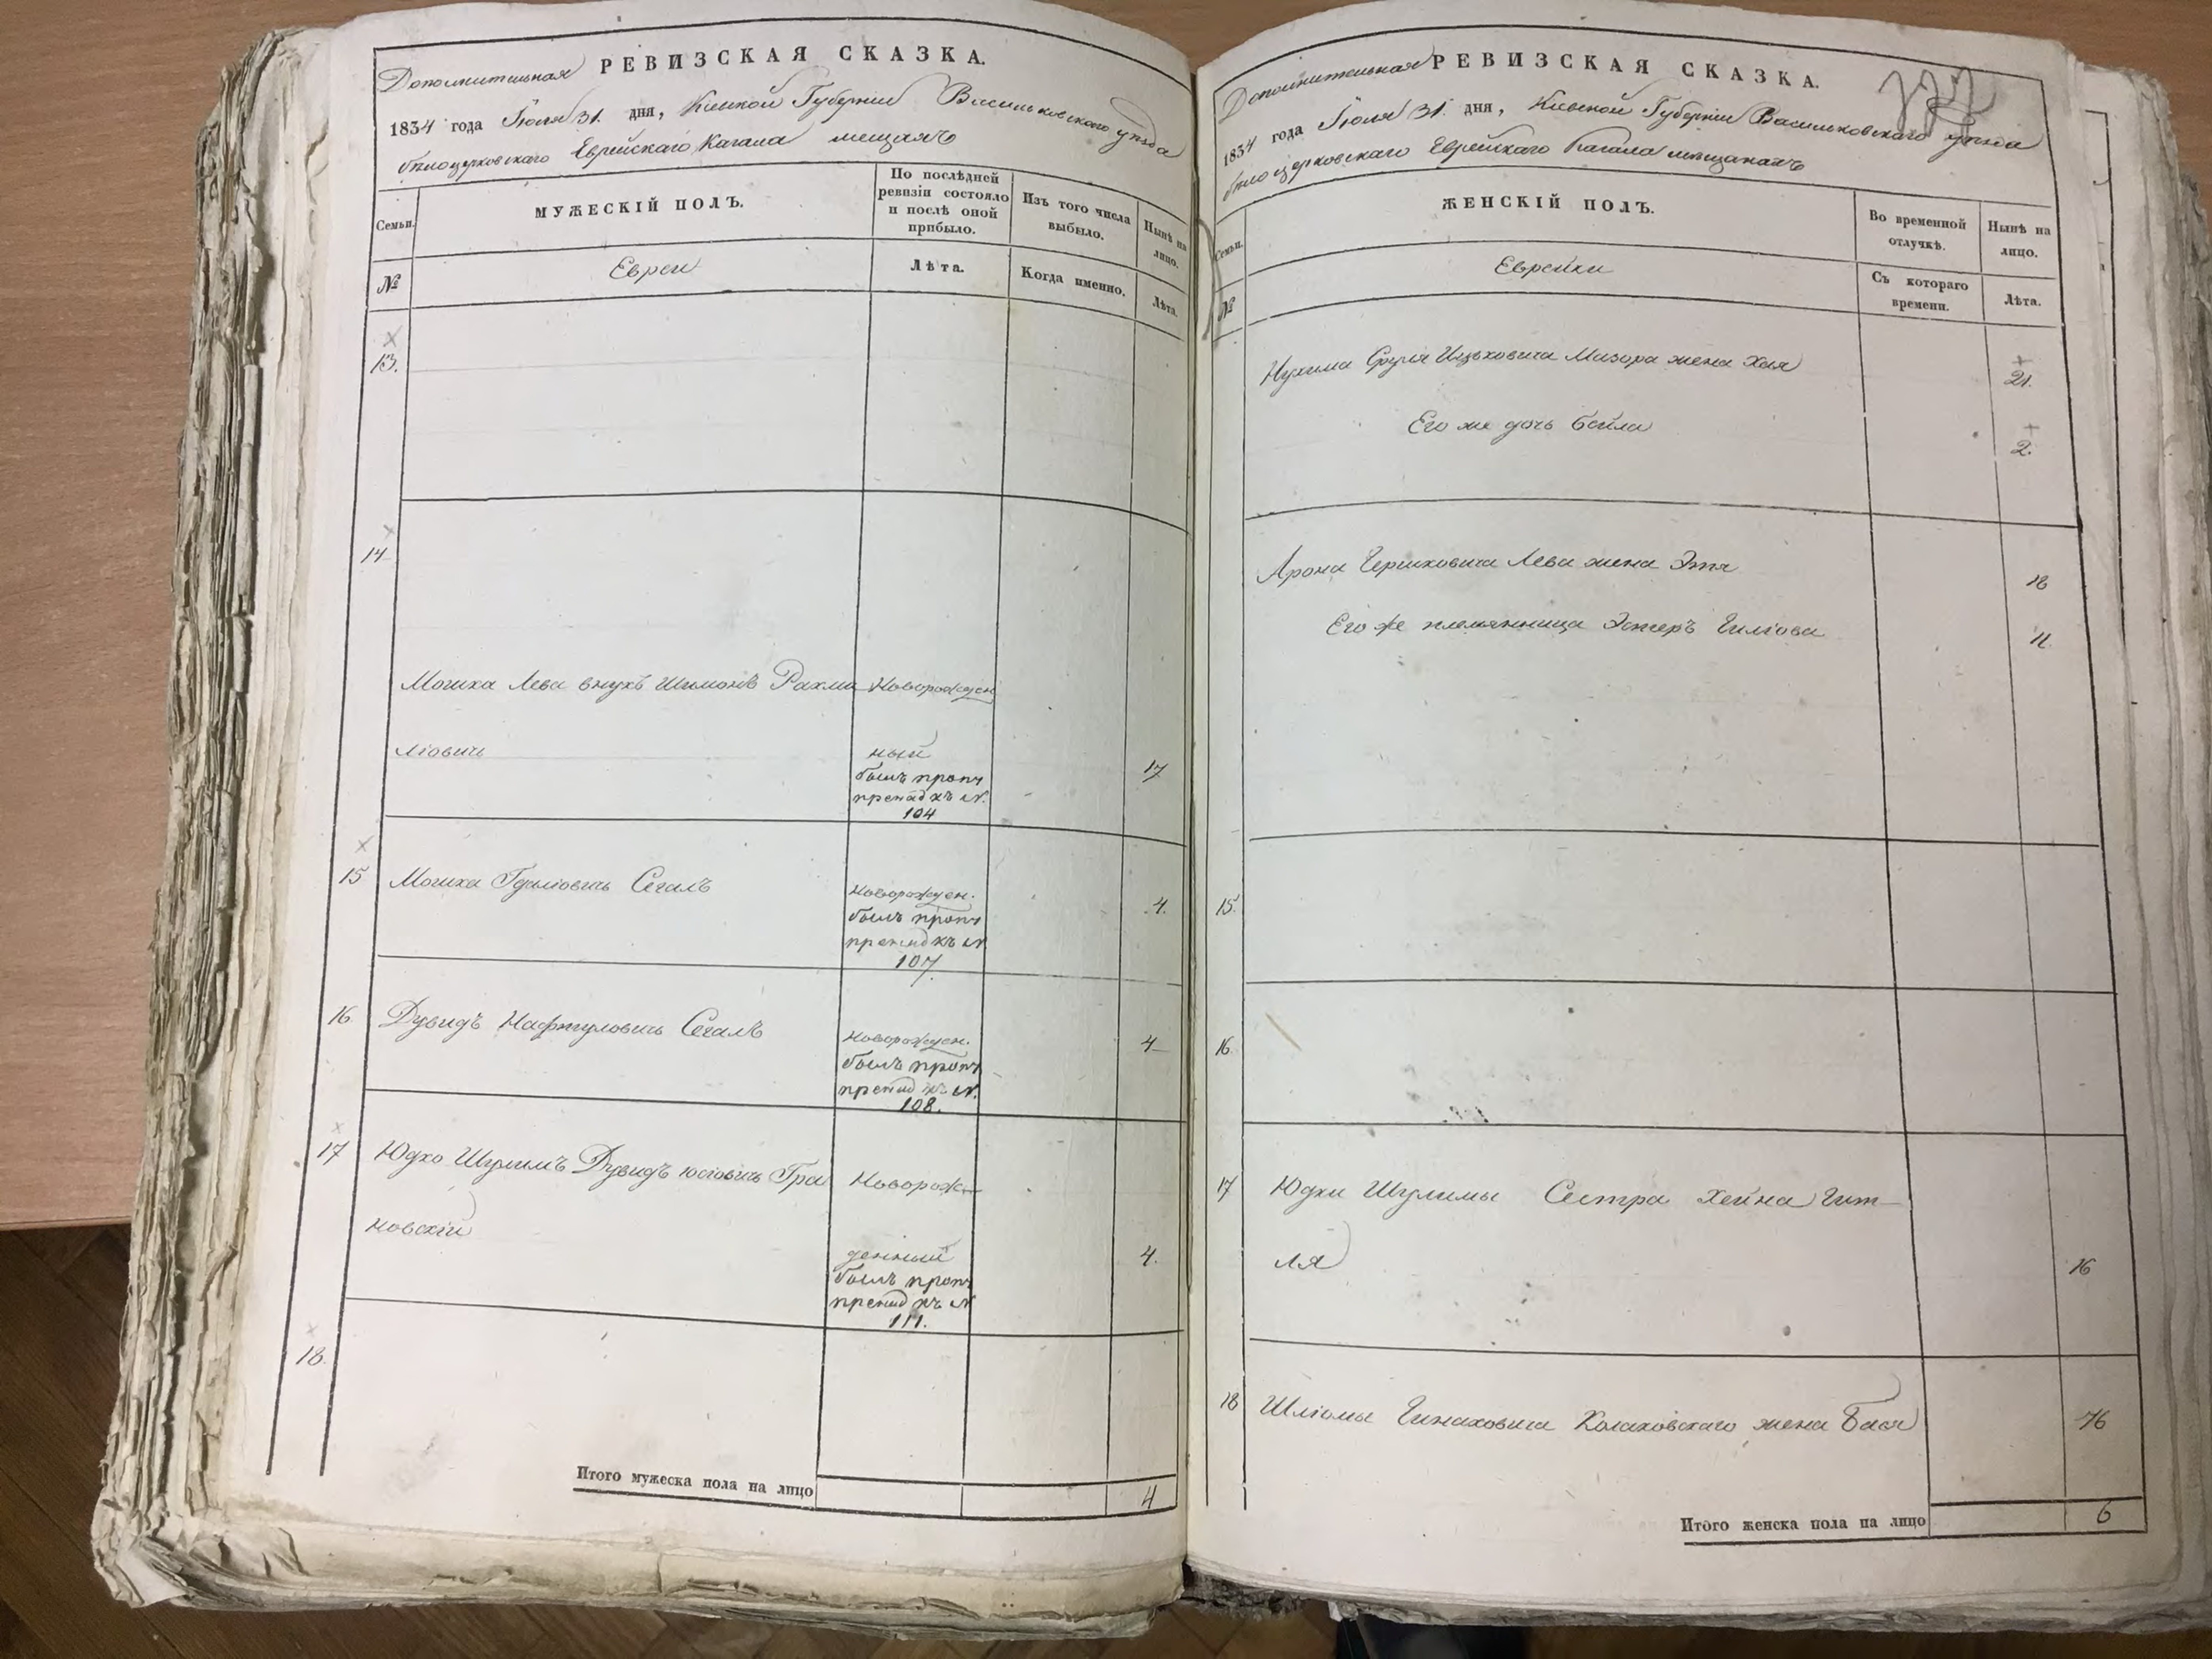 Дополнительная РЕВИЗСКАЯ СКАЗКА.
1834 года Іюля 31. дня, Кіевской Губерніи Васильковского уѣзда
бѣлоцерковскаго Еврейскаго Кагала мещанъ
Семьи.
МУЖЕСКІЙ ПОЛЪ.
По послѣдней
ревизіи состояло
и послѣ оной
прибыло.
Изъ того числа
выбыло.
Нынѣ на
лицо.
№
Евреи
Лѣта.
Когда именно.
Лѣта.
13.
14
Мошка Лева внукъ Шимонъ Рахми Новорожден
ліовичъ ный
былъ проп
препад къ N.
104
17
15 Мошка Гдаліовичъ Сегалъ Новорожден. 4.
былъ проп
препад къ N
107.
16 Дувидъ Нафтуловичъ Сегалъ Новорожден. 4
былъ проп
препад къ N.
108.
17 Юдко Шулимъ Дувидъ Юсіовичъ Гра Новорож
новскій
денный 4.
былъ проп
препад къ N
111.
18.
Итого мужеска пола на лицо 4
Дополнительная РЕВИЗСКАЯ СКАЗКА.
1834 года Іюля 31. дня, Кіевской Губерніи Васильковскаго уѣзда
бѣлоцерковскаго Еврейскаго Кагала мѣщанахъ
Семьи.
ЖЕНСКІЙ ПОЛЪ.
Во временной
отлучкѣ.
Нынѣ на
лицо.
№
Еврейки
Съ котораго
времени.
Лѣта.
Нухима Сруля Ицьковича Мазора жена Хая 21.
Его же дочь Бейла 2.
Арона Гершковича Лева жена Этя 18
Его же племянница Эстеръ Гиліова 11.
15.
16.
17 Юдки Шулимы Сестра Хейна Гит
ля 16
18 Шліомы Гинаховича Колаковскаго жена Бася 76
Итого женска пола на лицо 6